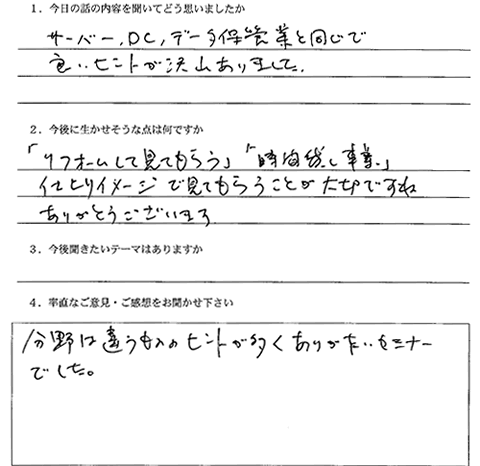 1．今日の話の内容を聞いてどう思いましたか
サーバー，DC，データ保管業と同じで
良いヒントが沢山ありました．
2．今後に生かせそうな点は何ですか
「リフォームして見てもらう」「時間貸し事業」
イメージで見てもらうことが大切ですね
ありがとうございます
3．今後聞きたいテーマはありますか
4．率直なご意見・ご感想をお聞かせ下さい
分野は違うもののヒントが多くありがたいセミナー
でした。